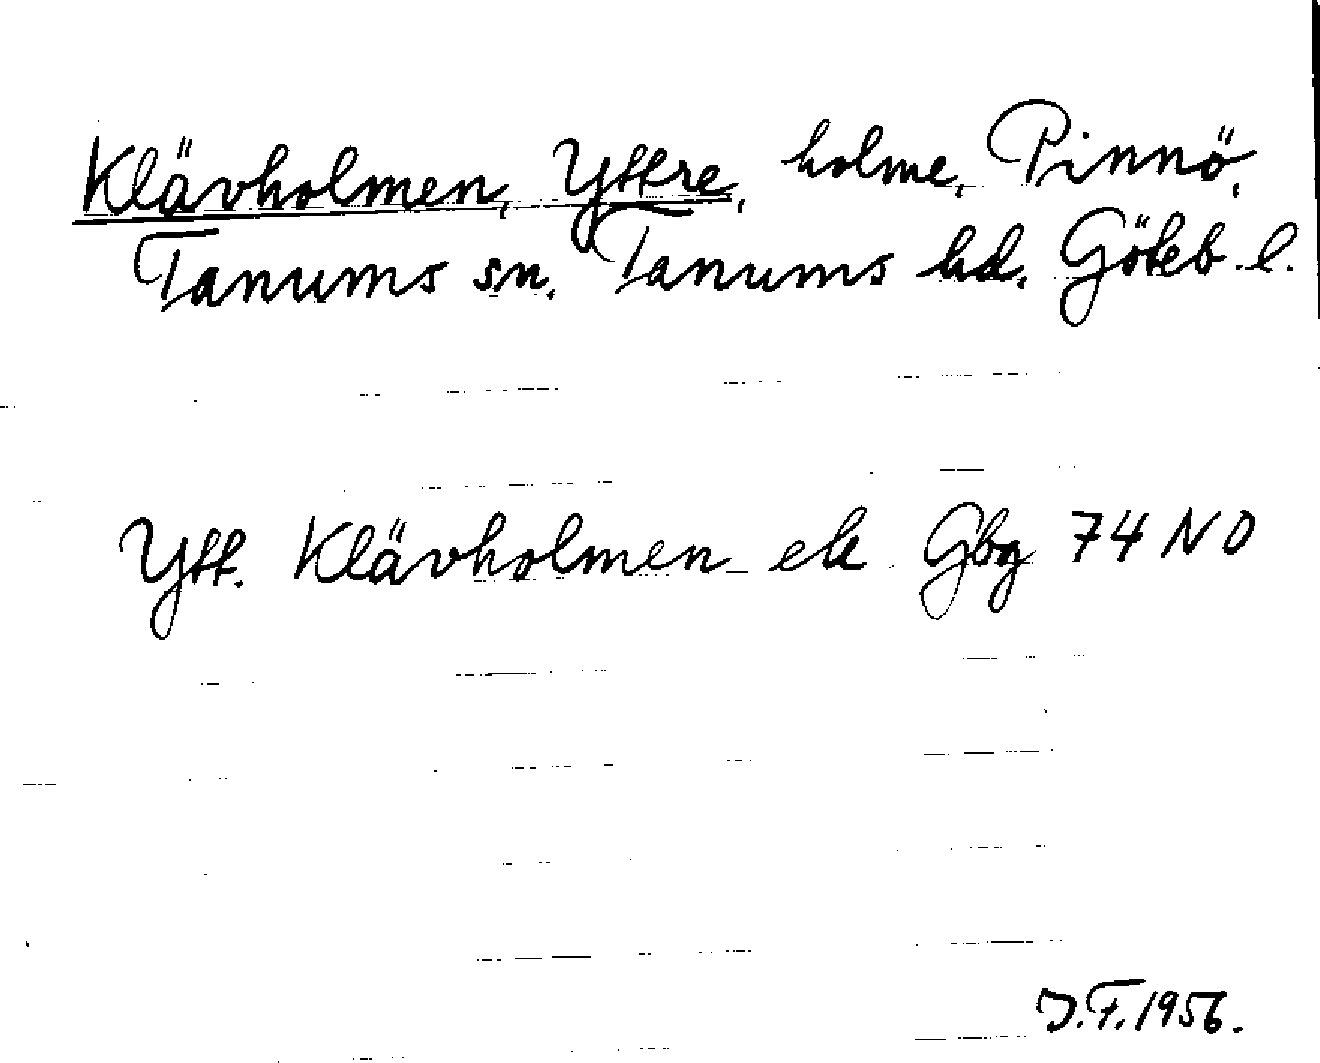 Klävholmen, Yttre, holme, Pinnö,
Tanums sn. Tanums hd. Göteb. l.
Ytt. Klävholmen ek Gbg 74 NO
J.F. 1956.